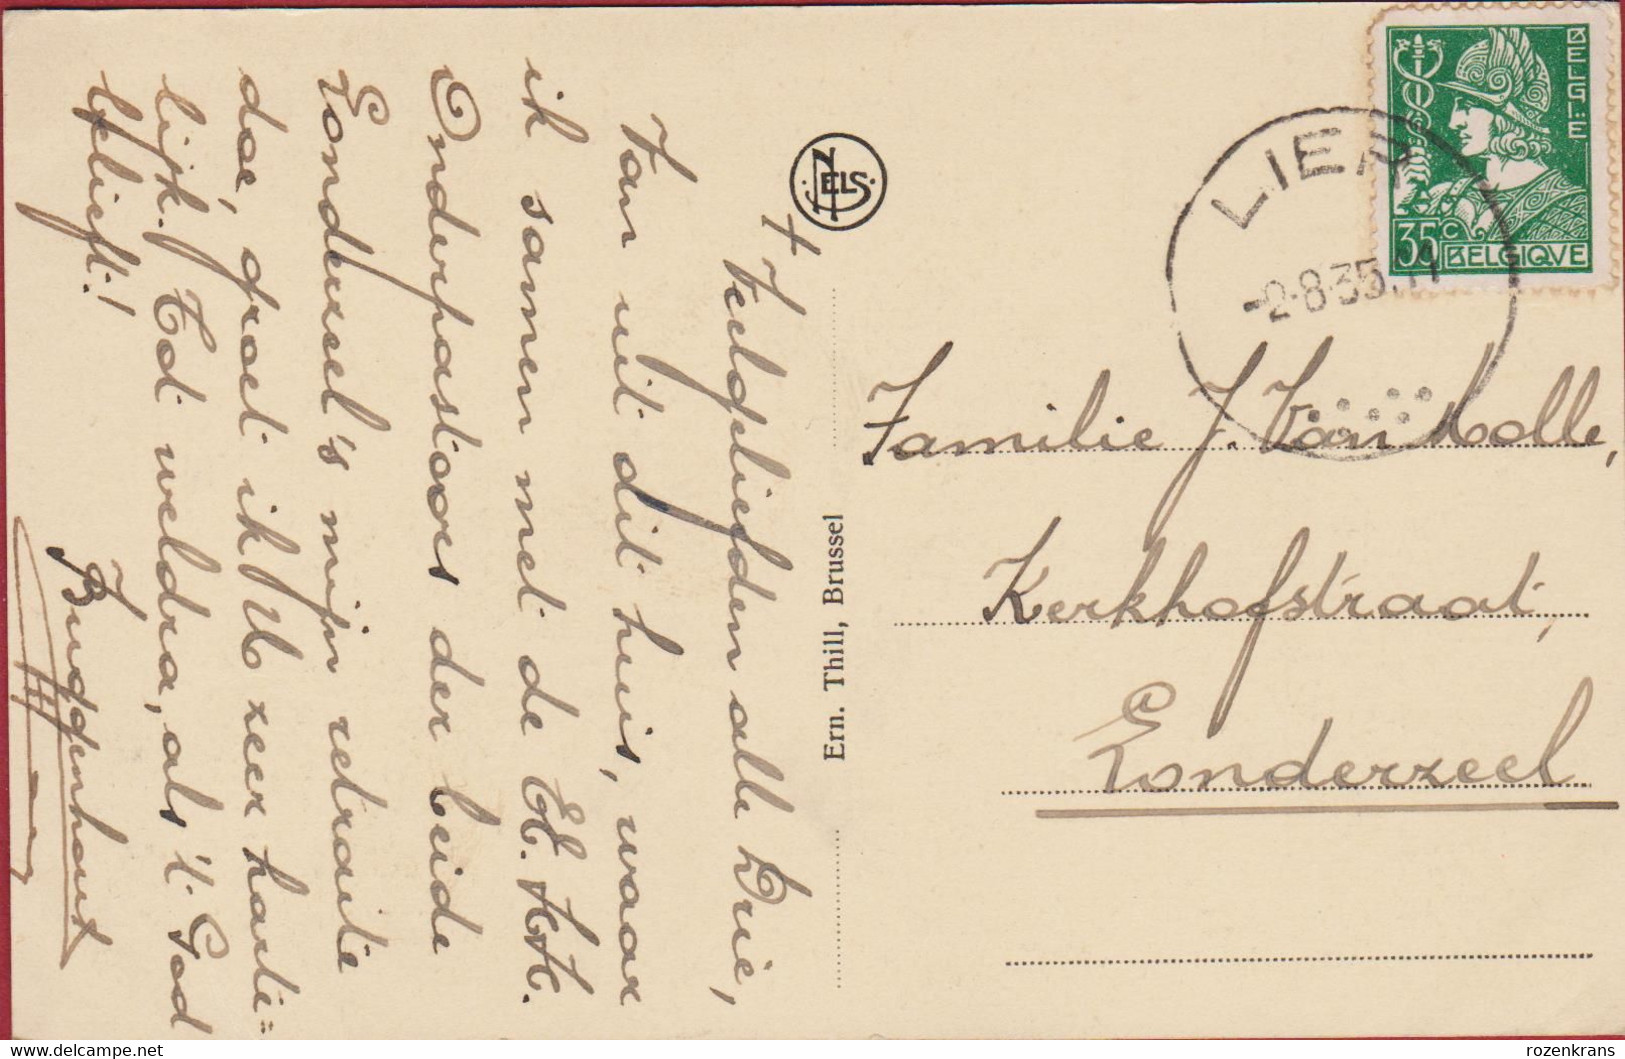 +
Veelgeliefden alle Drie,
Van uit dit huis, waar
ik samen met de EE. HH.
Onderpastoors der beide
Londerzeel's mijn retraite
doe, groet ik U zeer harte=
lijk. Tot weldra, als 't God
belieft!
Buggenhout
NELS
Ern. Thill, Brussel
BELGIË
35 C
BELGIQVE
LIER
-2-8-35.11
Familie J. Van Molle,
Kerkhofstraat,
Londerzeel
rozenkrans